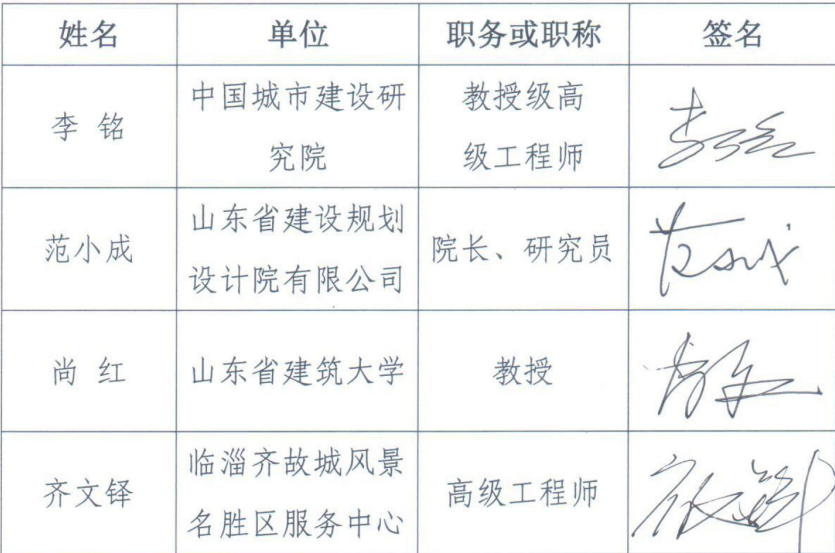 姓名 单位 职务或职称 签名
李 铭 中国城市建设研究院 教授级高级工程师 李铭
范小成 山东省建设规划设计院有限公司 院长、研究员 范小成
尚 红 山东省建筑大学 教授 尚红
齐文铎 临淄齐故城风景名胜区服务中心 高级工程师